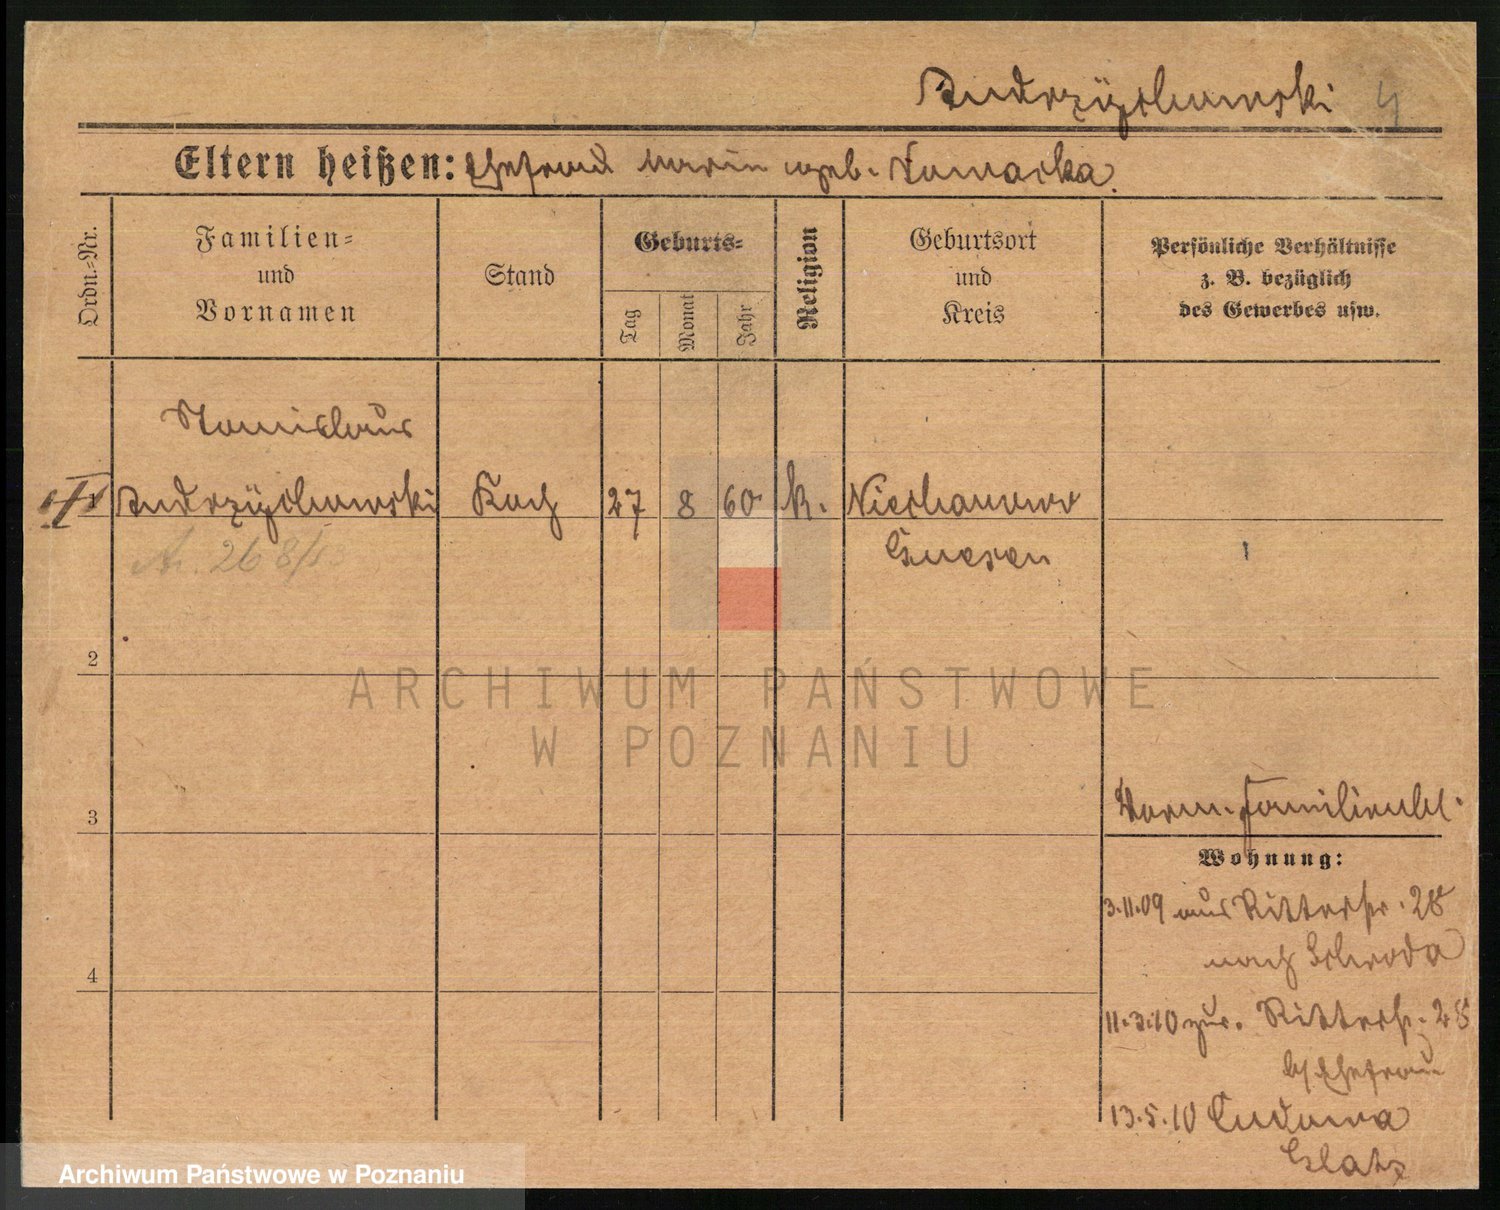 Andrzÿchowski 4
Eltern heißen: Ehefrau Marie geb. Nowacka.
Ordn.-Nr.
Familien-
und
Vornamen
Stand
Geburts-
Tag
Monat
Jahr
Religion
Geburtsort
und
Kreis
Persönliche Verhältnisse
z. B. bezüglich
des Gewerbes usw.
Stanislaus
1 Andrzÿchowski Koch 27 8 60 k. Niechanowo
Gnesen
2
3
4
Vorm. Familienbl.
Wohnung:
3.11.09 aus Ritterstr. 28
nach Schroda
11.3.10 zur. Ritterstr. 28
b/ Ehefrau
13.5.10 Cudowa
Glatz
ARCHIWUM PAŃSTWOWE
W POZNANIU
Archiwum Państwowe w Poznaniu